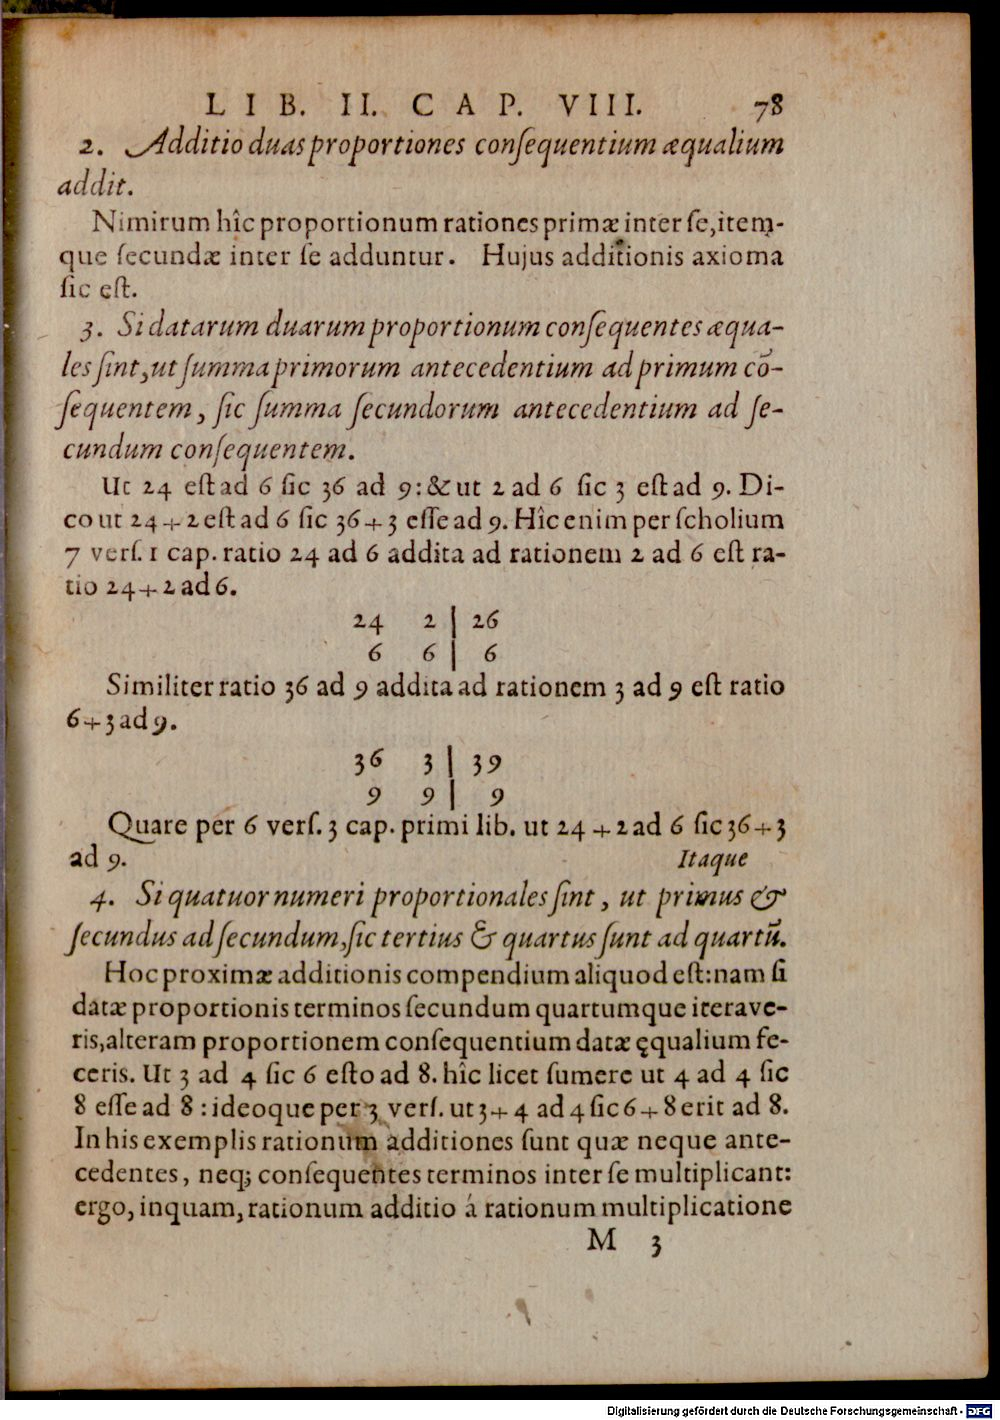 LIB. II. CAP. VIII. 78
2. Additio duas proportiones conſequentium æqualium
addit.
Nimirum hîc proportionum rationes primæ inter ſe, item-
que ſecundæ inter ſe adduntur. Hujus additionis axioma
ſic eſt.
3. Si datarum duarum proportionum conſequentes æqua-
les ſint, ut ſumma primorum antecedentium ad primum cō-
ſequentem, ſic ſumma ſecundorum antecedentium ad ſe-
cundum conſequentem.
Ut 24 eſt ad 6 ſic 36 ad 9: & ut 2 ad 6 ſic 3 eſt ad 9. Di-
co ut 24+2 eſt ad 6 ſic 36+3 eſſe ad 9. Hîc enim per ſcholium
7 verſ. 1 cap. ratio 24 ad 6 addita ad rationem 2 ad 6 eſt ra-
tio 24+2 ad 6.
24 2 | 26
6 6 | 6
Similiter ratio 36 ad 9 addita ad rationem 3 ad 9 eſt ratio
6+3 ad 9.
36 3 | 39
9 9 | 9
Quare per 6 verſ. 3 cap. primi lib. ut 24+2 ad 6 ſic 36+3
ad 9. Itaque
4. Si quatuor numeri proportionales ſint, ut primus &
ſecundus ad ſecundum, ſic tertius & quartus ſunt ad quartū.
Hoc proximæ additionis compendium aliquod eſt: nam ſi
datæ proportionis terminos ſecundum quartumque iterave-
ris, alteram proportionem conſequentium datæ ęqualium fe-
ceris. Ut 3 ad 4 ſic 6 eſto ad 8. hîc licet ſumere ut 4 ad 4 ſic
8 eſſe ad 8: ideoque per 3 verſ. ut 3+4 ad 4 ſic 6+8 erit ad 8.
In his exemplis rationum additiones ſunt quæ neque ante-
cedentes, neq; conſequentes terminos inter ſe multiplicant:
ergo, inquam, rationum additio á rationum multiplicatione
M 3
Digitalisierung gefördert durch die Deutsche Forschungsgemeinschaft - DFG